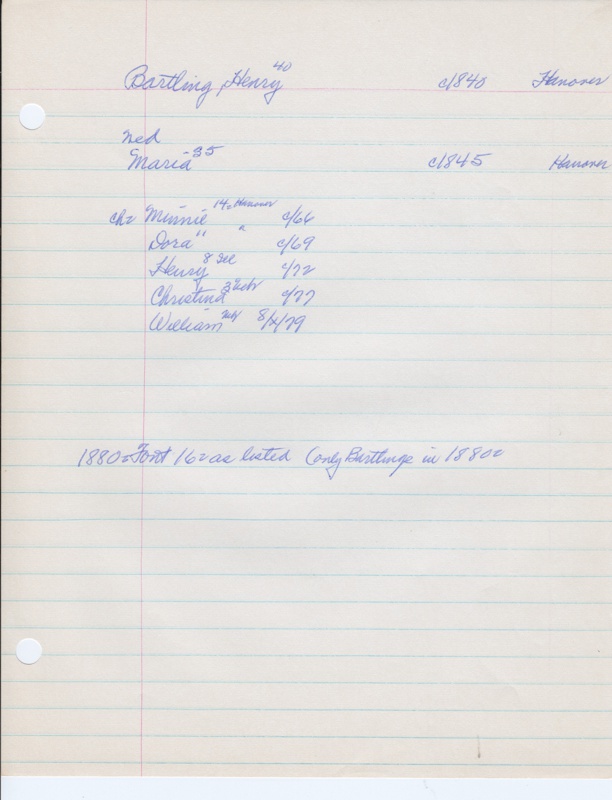 Bartling, Henry 40 c1840 Hanover
Med
Maria 35 c1845 Hanover
ch= Minnie 14= Hanover c/66
Dora 11 " c/69
Henry 8 Ill c/72
Christina 3 Nebr c/77
William Neb 8/x/79
1880= Font 16= as listed (only Bartlings in 1880=